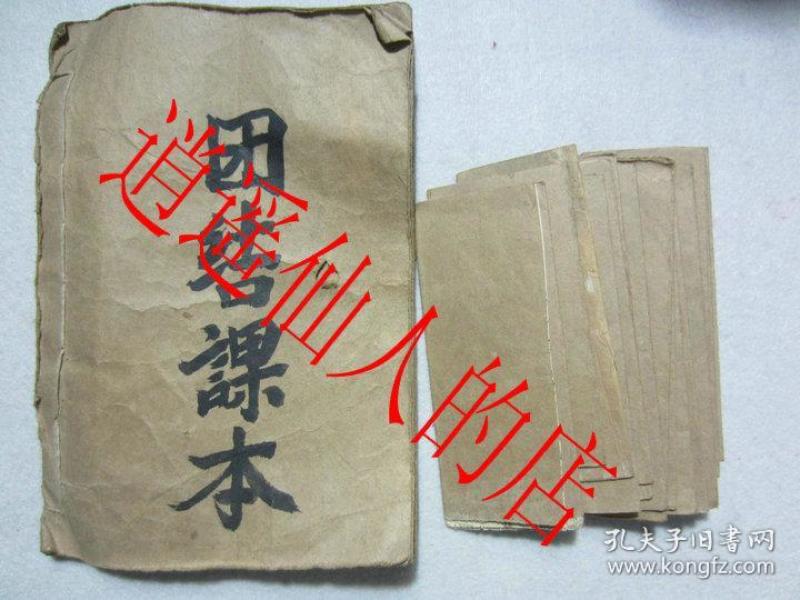 团書課本
逍遥仙人的店
孔夫子旧書网
www.kongfz.com